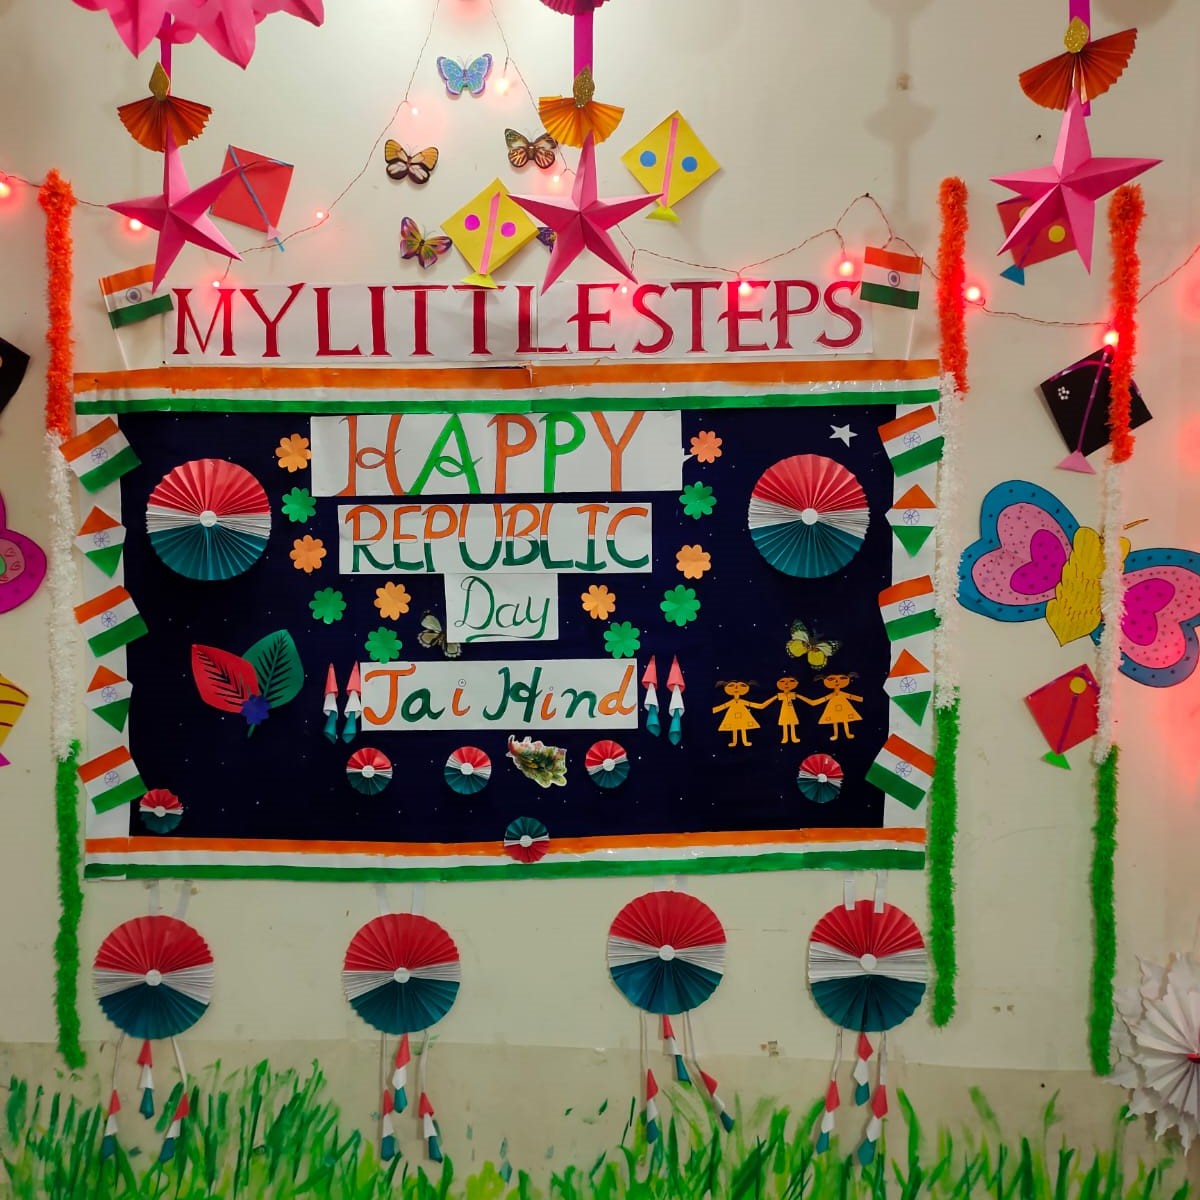 MY LITTLE STEPS
HAPPY
REPUBLIC
Day
Jai Hind